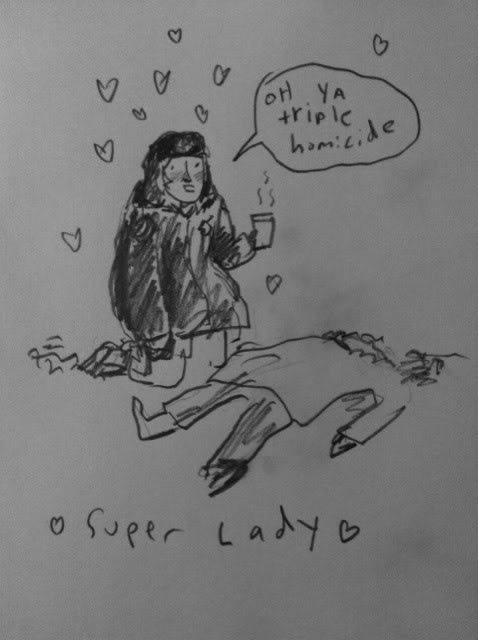 OH YA
triple
homicide
Super Lady